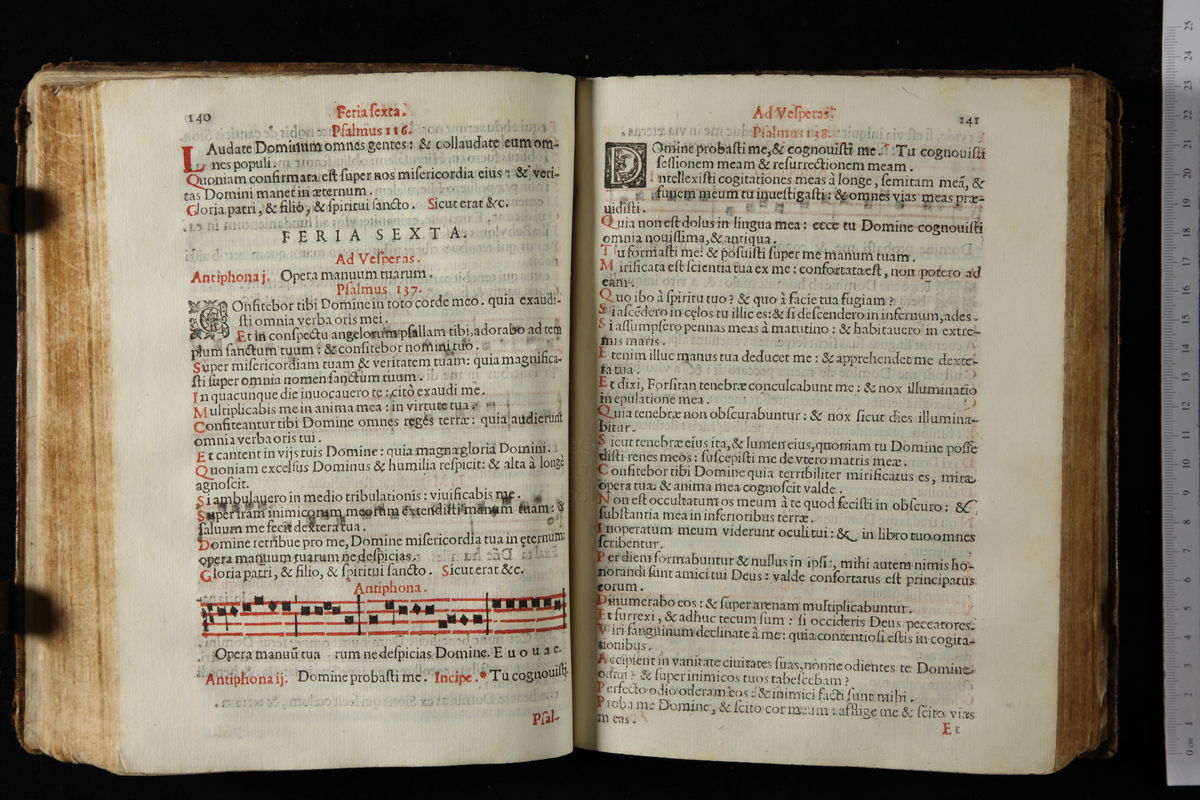 140
Feria sexta.
Psalmus 116.
LAudate Dominum omnes gentes: & collaudate eum om-
nes populi.
Quoniam confirmata est super nos misericordia eius: & veri-
tas Domini manet in æternum.
Gloria patri, & filio, & spiritui sancto. Sicut erat &c.
FERIA SEXTA.
Ad Vesperas.
Antiphona j. Opera manuum tuarum.
Psalmus 137.
COnfitebor tibi Domine in toto corde meo. quia exaudi-
sti omnia verba oris mei.
Et in conspectu angelorum psallam tibi, adorabo ad tem
plum sanctum tuum: & confitebor nomini tuo.
Super misericordiam tuam & veritatem tuam: quia magnifica-
sti super omnia nomen sanctum tuum.
In quacunque die inuocauero te: citò exaudi me.
Multiplicabis me in anima mea: in virtute tua.
Confiteantur tibi Domine omnes reges terræ: quia audierunt
omnia verba oris tui.
Et cantent in vijs tuis Domine: quia magna gloria Domini.
Quoniam excelsus Dominus & humilia respicit: & alta à longè
agnoscit.
Si ambulauero in medio tribulationis: viuificabis me.
Super iram inimicorum meorum extendisti manum tuam: &
saluum me fecit dextera tua.
Domine retribue pro me, Domine misericordia tua in ęternum:
opera manuum tuarum ne despicias.
Gloria patri, & filio, & spiritui sancto. Sicut erat &c.
Antiphona.
Opera manuū tua rum ne despicias Domine. E u o u a e.
Antiphona ij. Domine probasti me. Incipe.* Tu cognouisti.
Psal-
Ad Vesperas.
141
Psalmus 138.
DOmine probasti me, & cognouisti me. Tu cognouisti
sessionem meam & resurrectionem meam.
Intellexisti cogitationes meas à longe, semitam meā, &
funem meum tu inuestigasti: & omnes vias meas præ-
uidisti.
Quia non est dolus in lingua mea: ecce tu Domine cognouisti
omnia nouissima, & antiqua.
Tu formasti me: & posuisti super me manum tuam.
Mirificata est scientia tua ex me: confortata est, non potero ad
eam.
Quo ibo à spiritu tuo? & quo à facie tua fugiam?
Si ascēdero in cęlos tu illic es: & si descendero in infernum, ades.
Si assumpsero pennas meas à matutino: & habitauero in extre-
mis maris.
Etenim illuc manus tua deducet me: & apprehendet me dexte-
ra tua.
Et dixi, Forsitan tenebræ conculcabunt me: & nox illuminatio
in epulatione mea.
Quia tenebræ non obscurabuntur: & nox sicut dies illumina-
bitur.
Sicut tenebræ eius ita, & lumen eius, quoniam tu Domine posse
disti renes meos: suscepisti me de vtero matris meæ.
Confitebor tibi Domine quia terribiliter mirificatus es, mira
opera tua: & anima mea cognoscit valde.
Non est occultatum os meum à te quod fecisti in obscuro: &
substantia mea in inferioribus terræ.
Inoperatum meum viderunt oculi tui: & in libro tuo omnes
scribentur.
Per diem formabuntur & nullus in ipsi:, mihi autem nimis ho-
norandi sunt amici tui Deus: valde confortatus est principatus
eorum.
Dinumerabo eos: & super arenam multiplicabuntur.
Et surrexi, & adhuc tecum sum: si occideris Deus peccatores.
Viri sanguinum declinate à me: quia contentiosi estis in cogita-
tionibus.
Accipient in vanitate ciuitates suas, nonne odientes te Domine
odiui? & super inimicos tuos tabescebam?
Perfecto odio oderam eos: & inimici facti sunt mihi.
Proba me Domine, & scito cor meum: afflige me & scito vias
meas.
Et